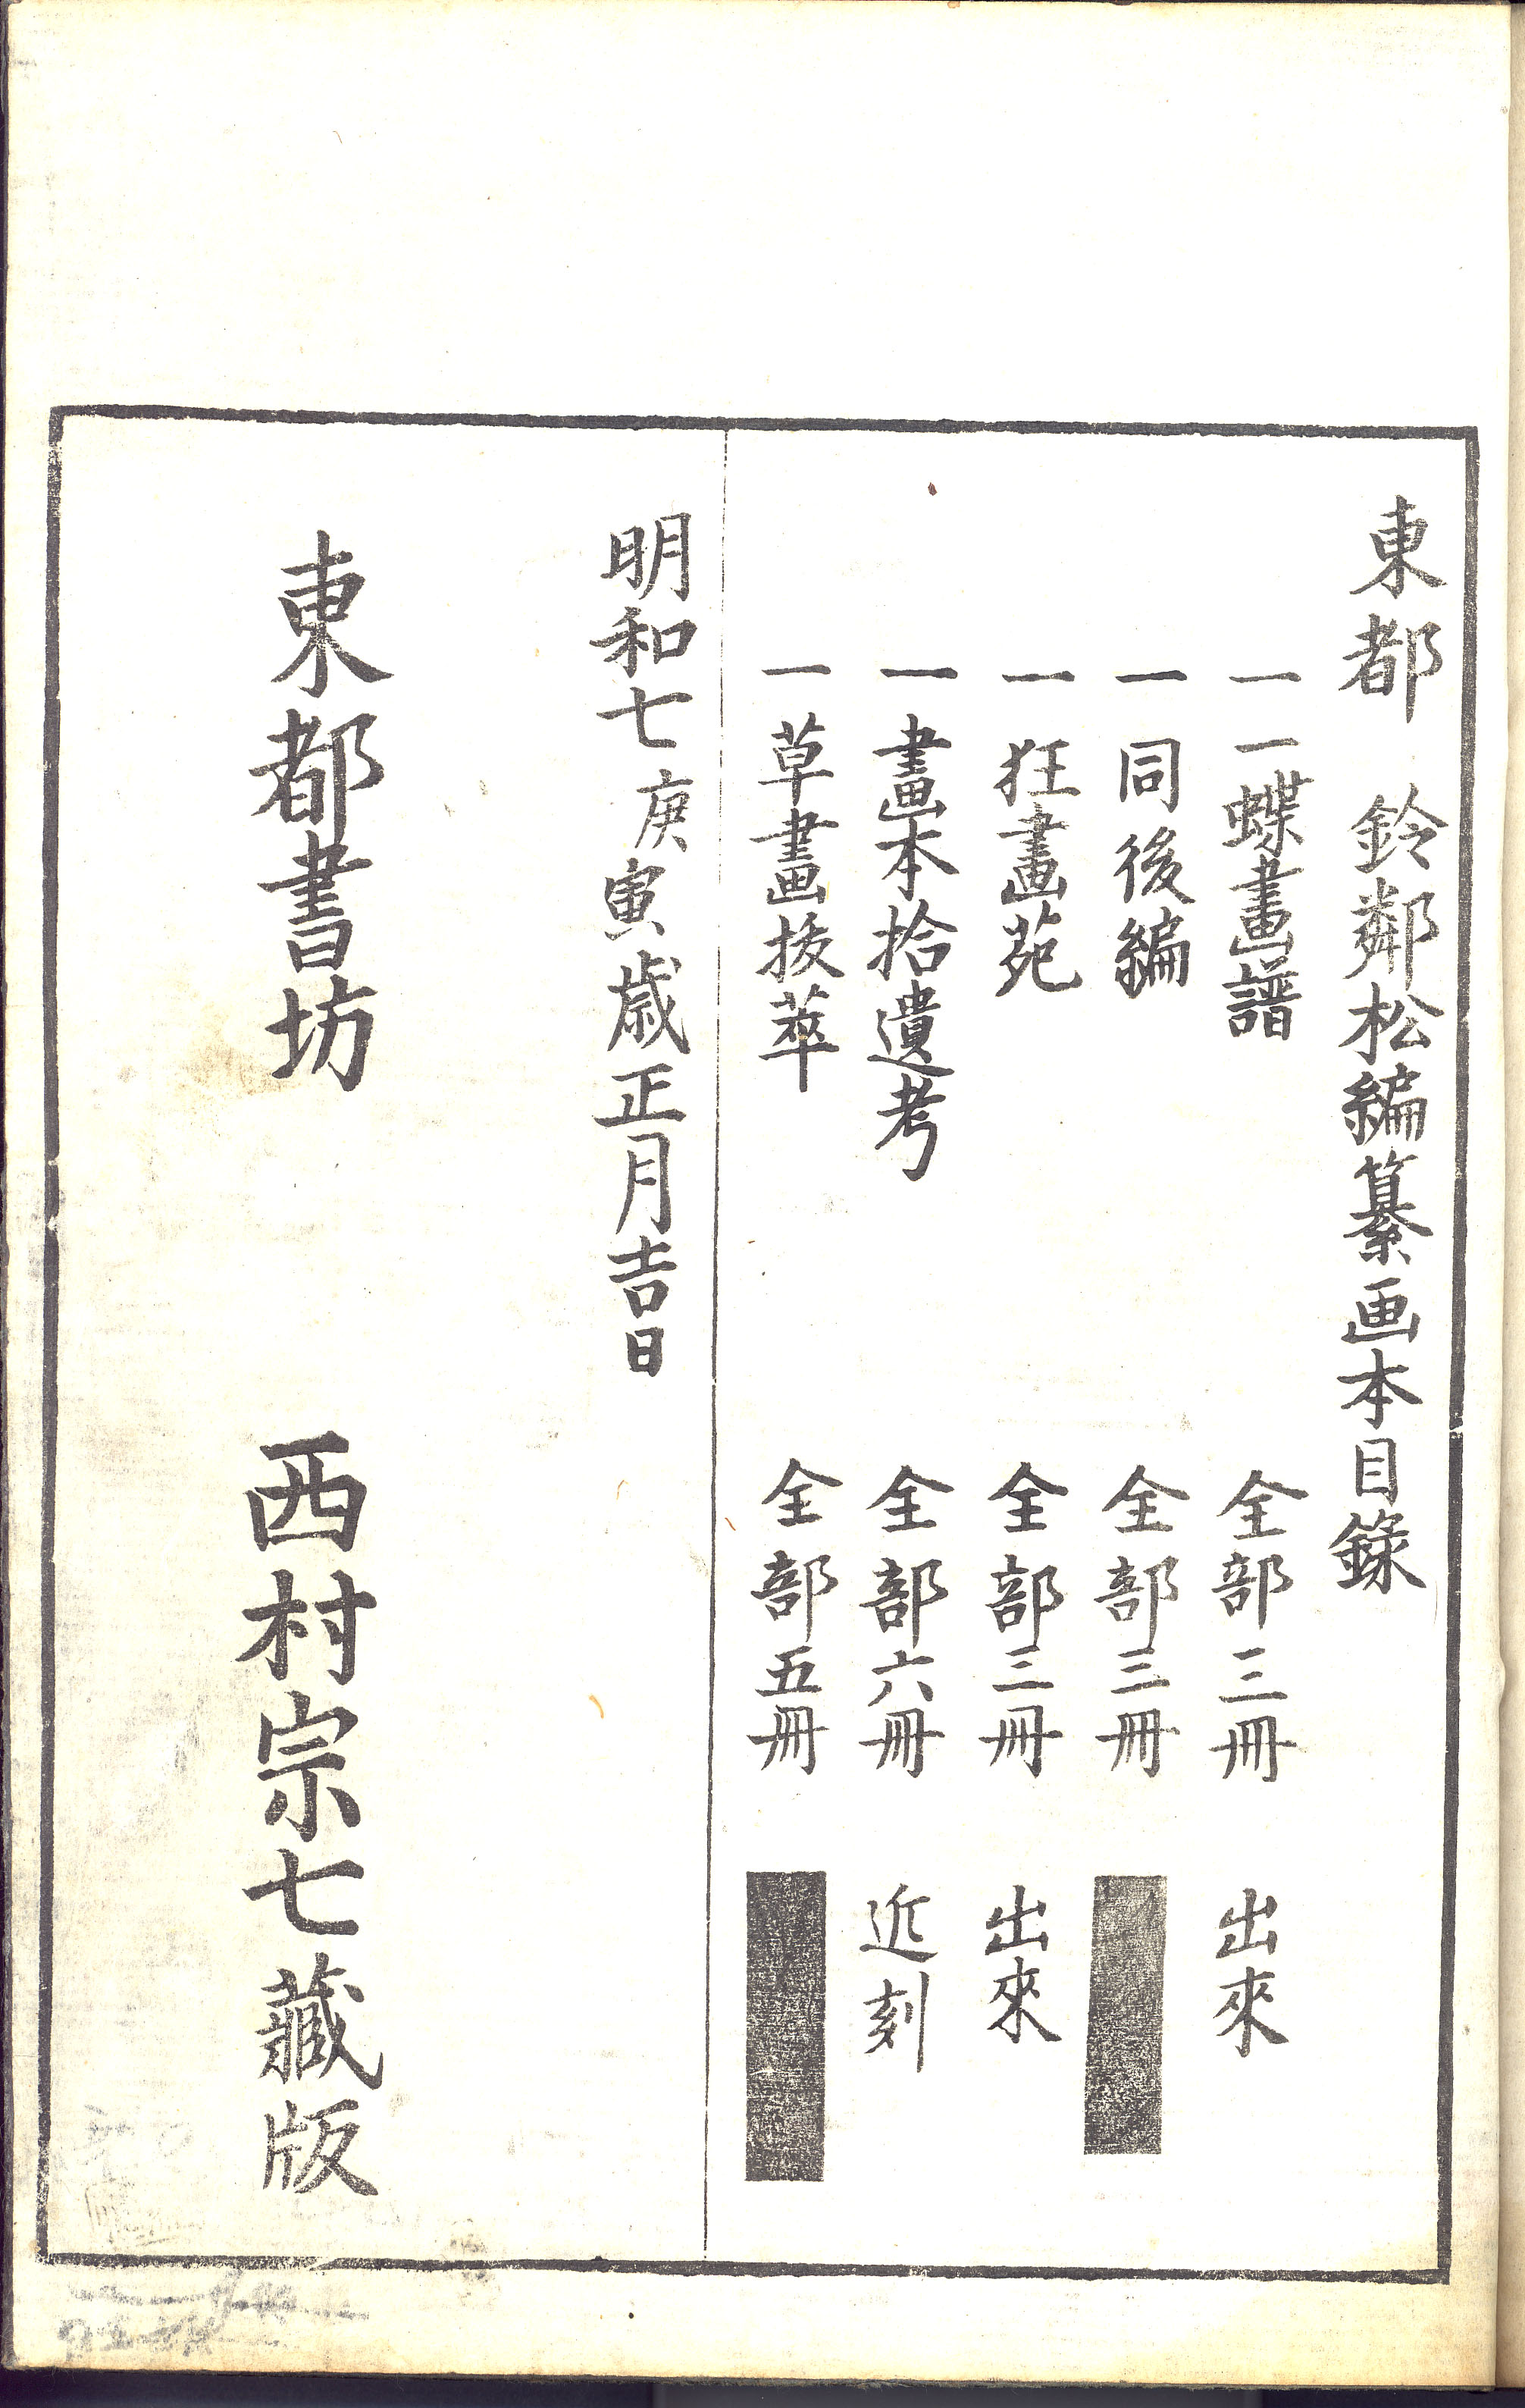 東都 鈴鄰松編纂画本目録
一 一蝶畫譜 全部三冊 出來
一 同後編 全部三冊
一 狂畫苑 全部三冊 出來
一 畫本拾遺考 全部六冊 近刻
一 草畫拔萃 全部五冊
明和七庚寅歳正月吉日
東都書坊 西村宗七藏版